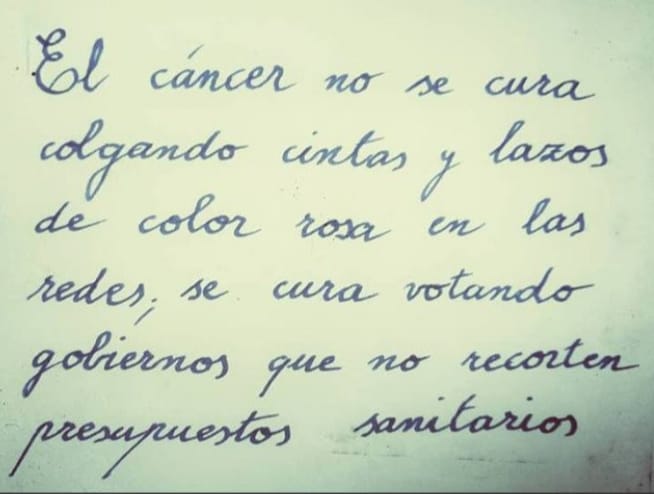 El cáncer no se cura
colgando cintas y lazos
de color rosa en las
redes; se cura votando
gobiernos que no recorten
presupuestos sanitarios